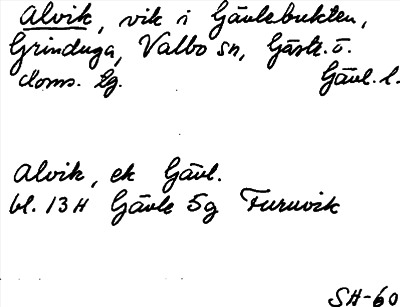 Alvik, vik i Gävlebukten,
Grinduga, Valbo sn, Gästr. ö.
doms. lg. Gävl. l.
Alvik, ek Gävl.
bl. 13H Gävle 5g Furuvik
SH-60